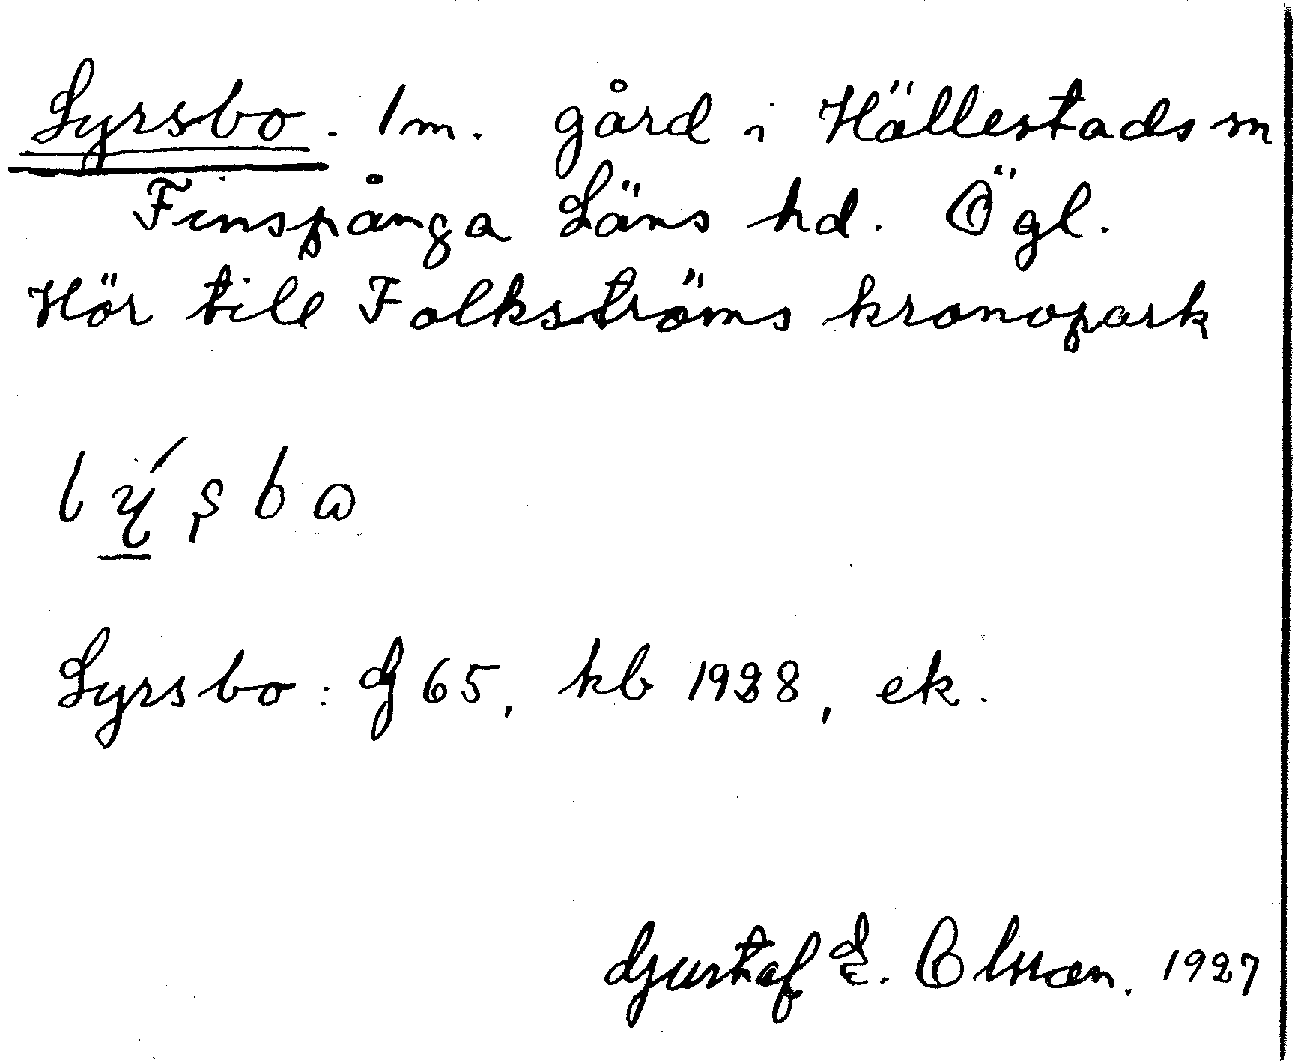 Lyrsbo. 1 m. gård i Hällestads sn
Finspånga Läns hd. Ögl.
Hör till Folkströms kronopark
lýs̩bɷ
Lyrsbo: G 65, kb 1928, ek.
Gustaf E. Olsson. 1927